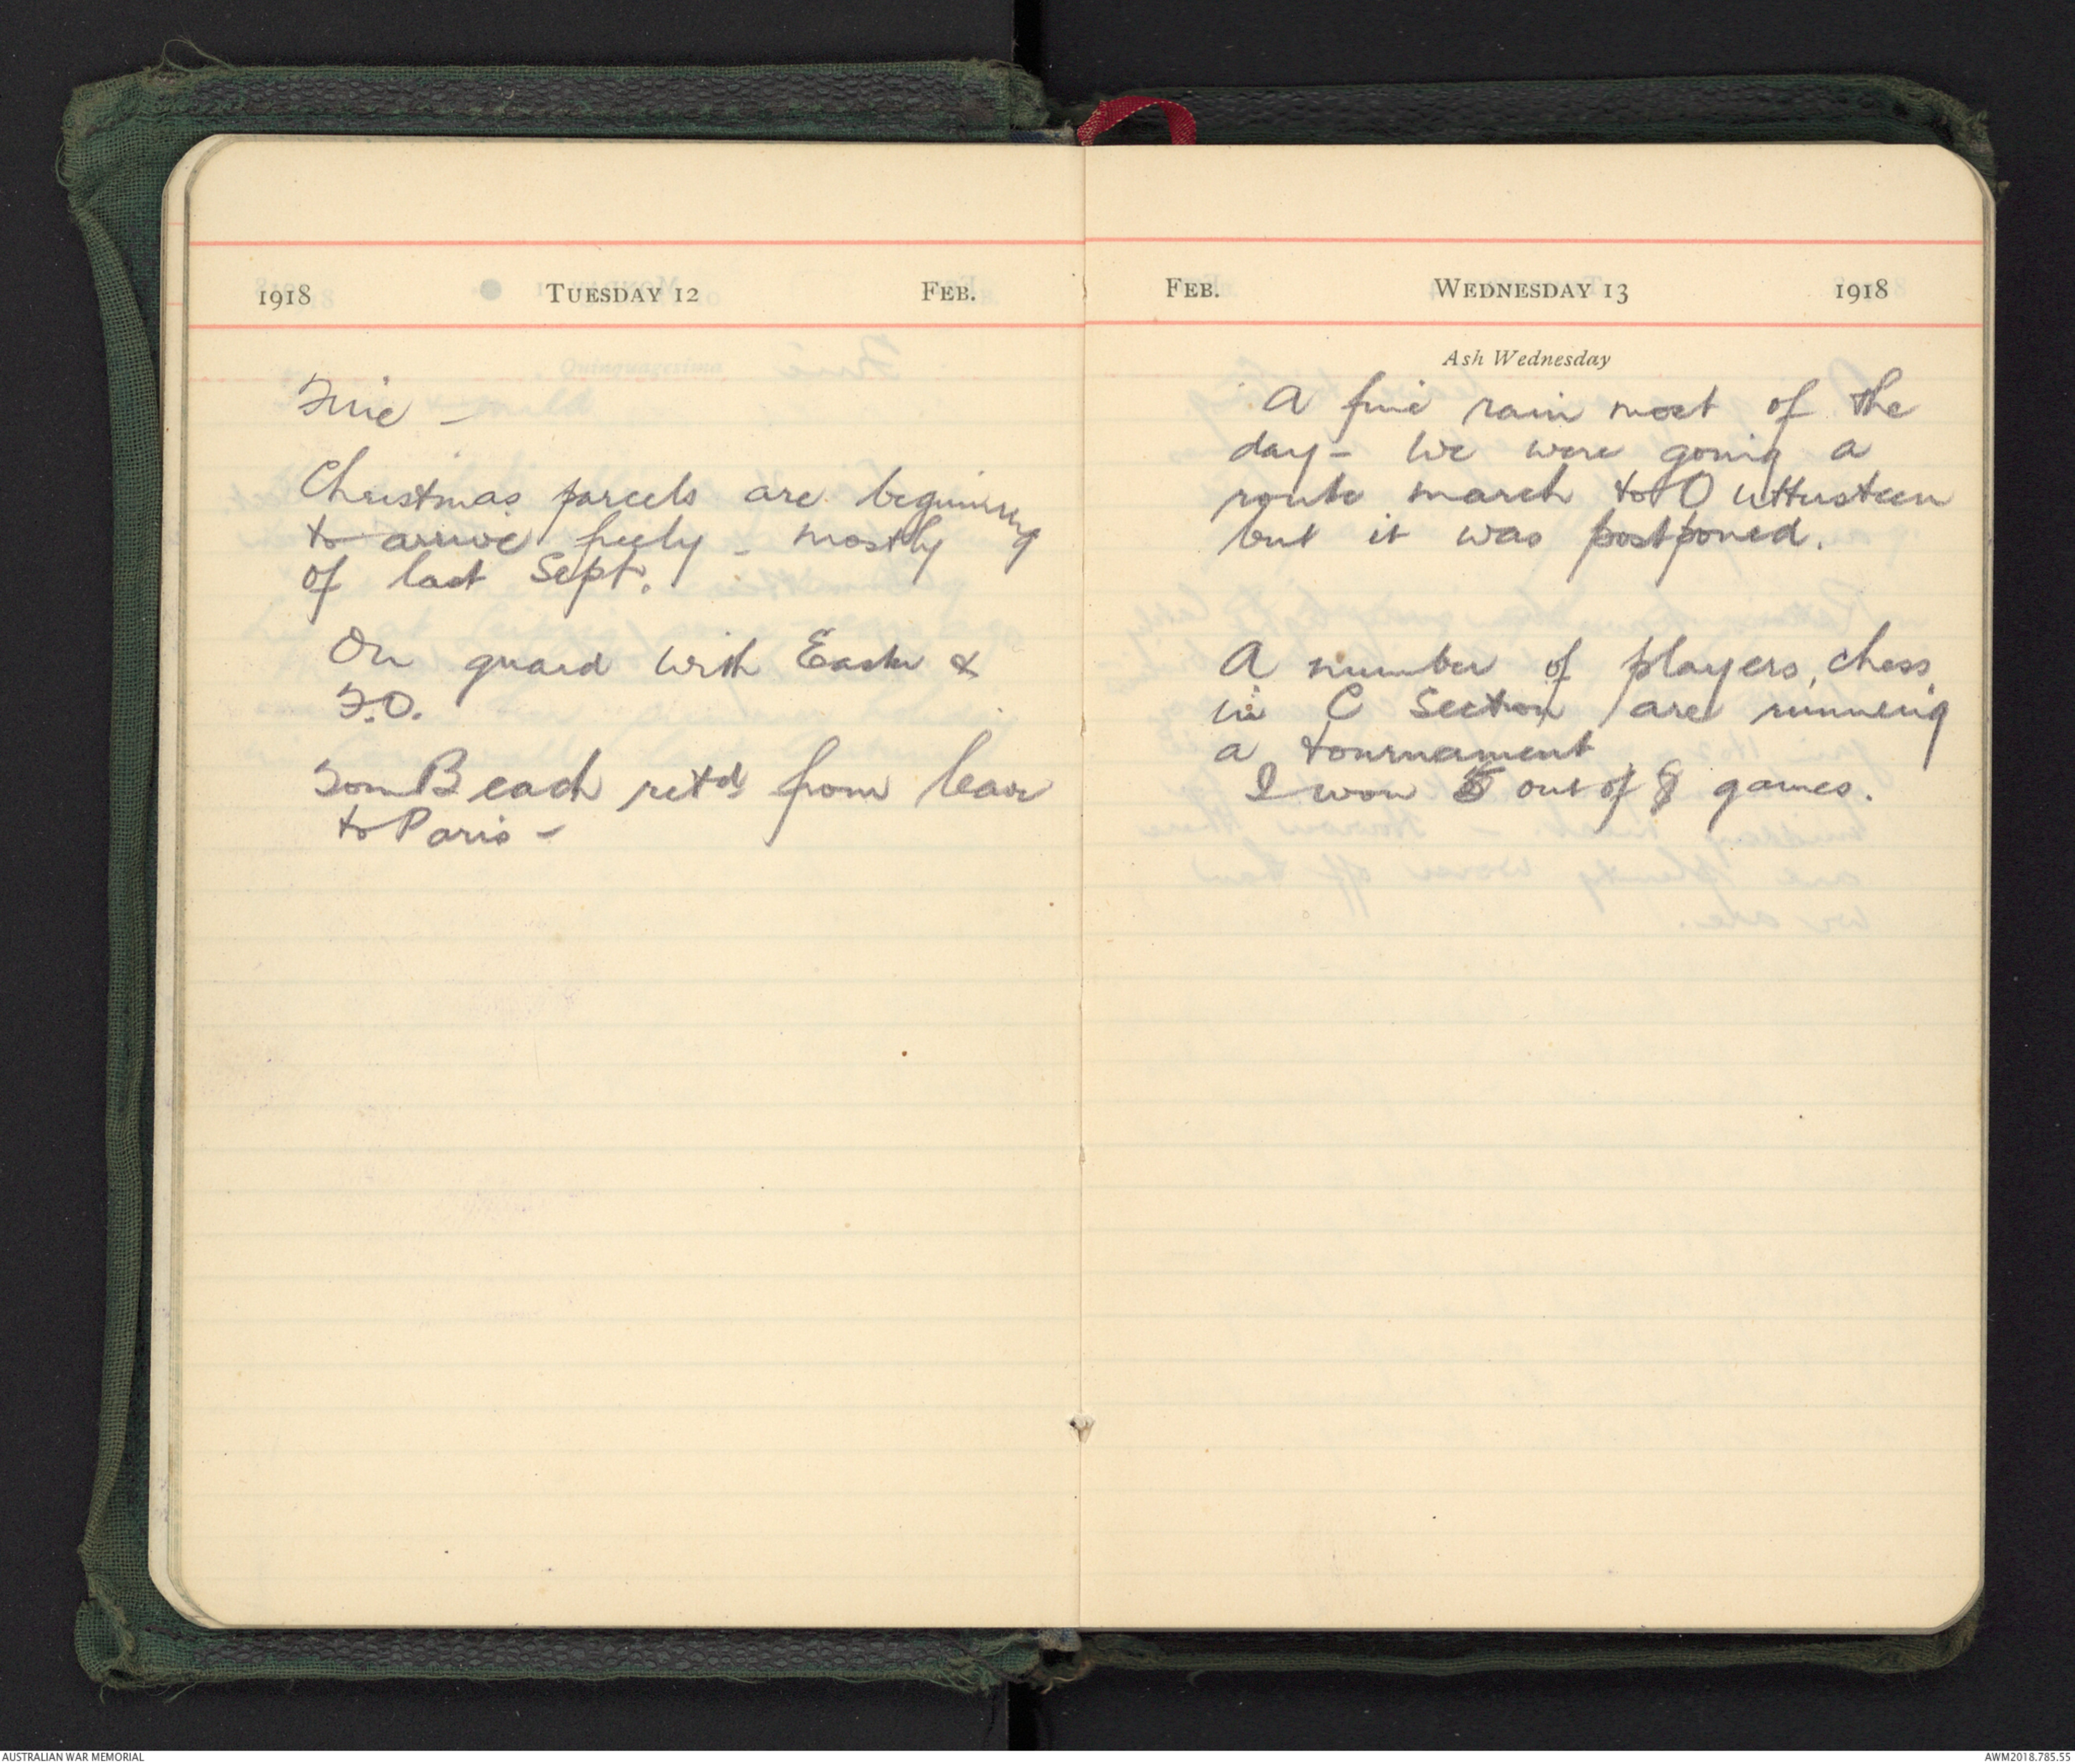 1918 TUESDAY 12 FEB.
Fine –
Christmas parcels are beginning
to arrive freely – mostly
of last Sept.
On guard with Easter &
F.O.
Tom Beach retd from leave
to Paris –
FEB. WEDNESDAY 13 1918
Ash Wednesday
A fine rain most of the
day – We were going a
route march to Outtersteen
but it was postponed.
A number of players, chess,
in C Section are running
a tournament
I won 5 out of 8 games.
AUSTRALIAN WAR MEMORIAL
AWM2018.785.55